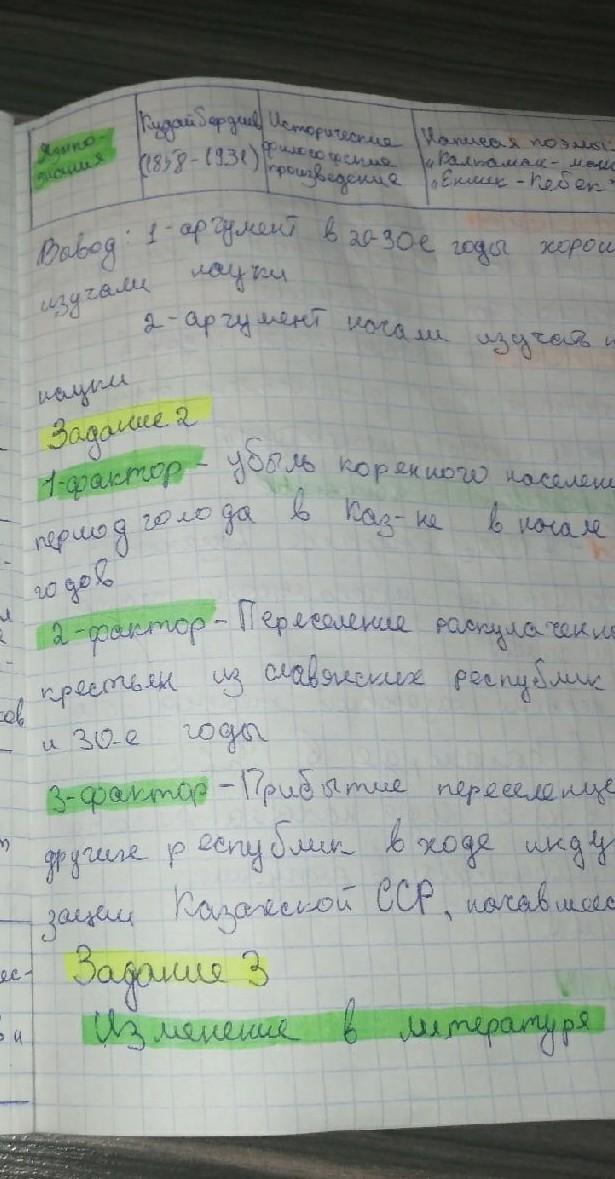 Языко-
знания
Кудайбердиев
(1858-1931)
Исторические
философские
произведение
Написал поэмы:
„Калкаман-
„Енлик-Кебек
Вывод: 1-аргумент в 20-30-е годы хорош
изучали науки
2-аргумент начали изучать
науки
Задание 2
1-фактор - убыль коренного населени
период голода в Каз-не в начале
годов
2-фактор - Переселение раскулаченн
крестьян из славянских республик
и 30-е годы
3-фактор - Прибытие переселенце
других республик в ходе инду
зации Казахской ССР, начавшеес
Задание 3
Изменение в литературе